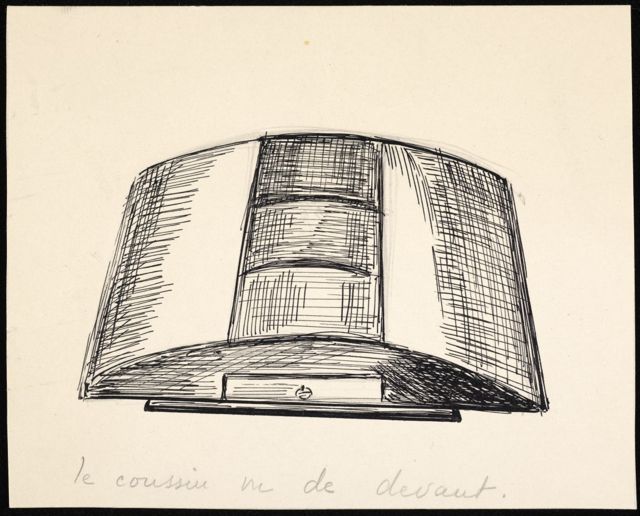 le coussin vu de devant.